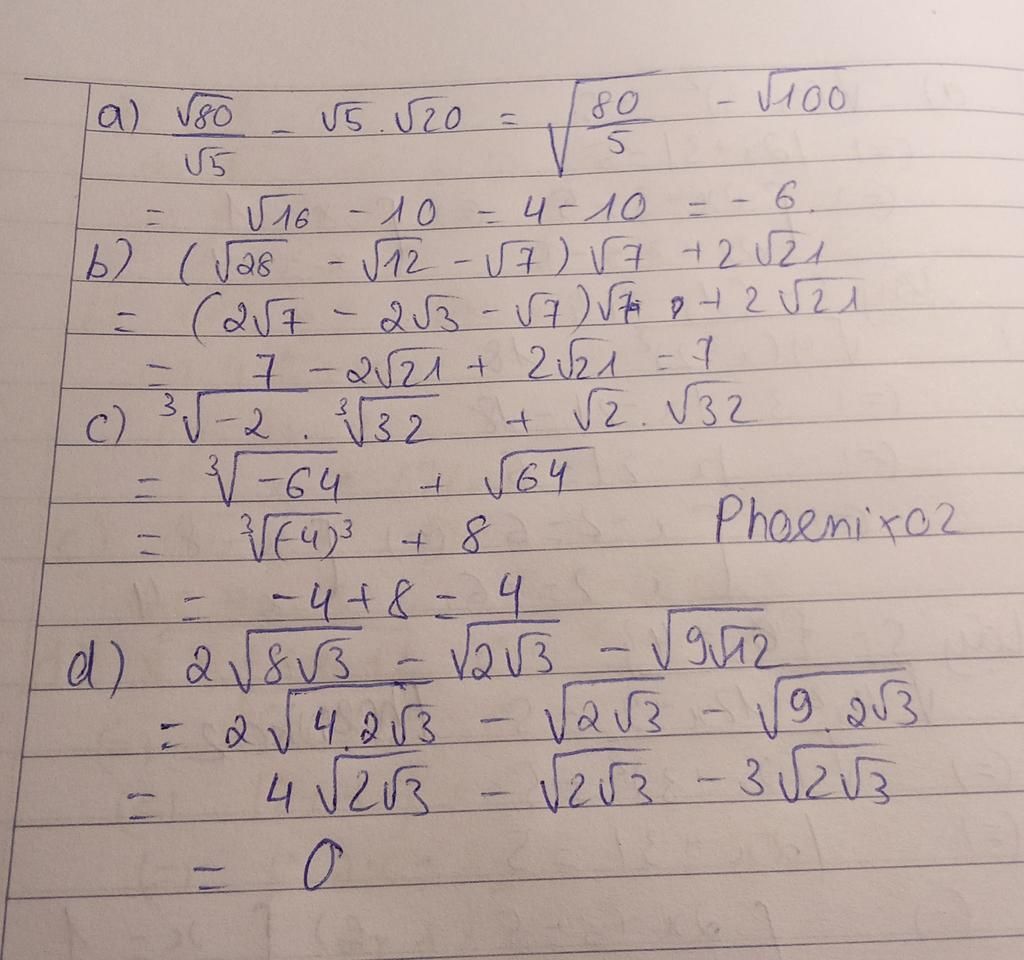 a) √80/√5 - √5.√20 = √(80/5) - √100
= √16 - 10 = 4 - 10 = - 6.
b) (√28 - √12 - √7) √7 + 2√21
= (2√7 - 2√3 - √7)√7 + 2√21
= 7 - 2√21 + 2√21 = 7
c) ³√-2 . ³√32 + √2 . √32
= ³√-64 + √64
= ³√(-4)³ + 8
Phoenix02
= -4 + 8 = 4
d) 2√(8√3) - √(2√3) - √(9√12)
= 2√(4.2√3) - √(2√3) - √(9.2√3)
= 4√(2√3) - √(2√3) - 3√(2√3)
= 0